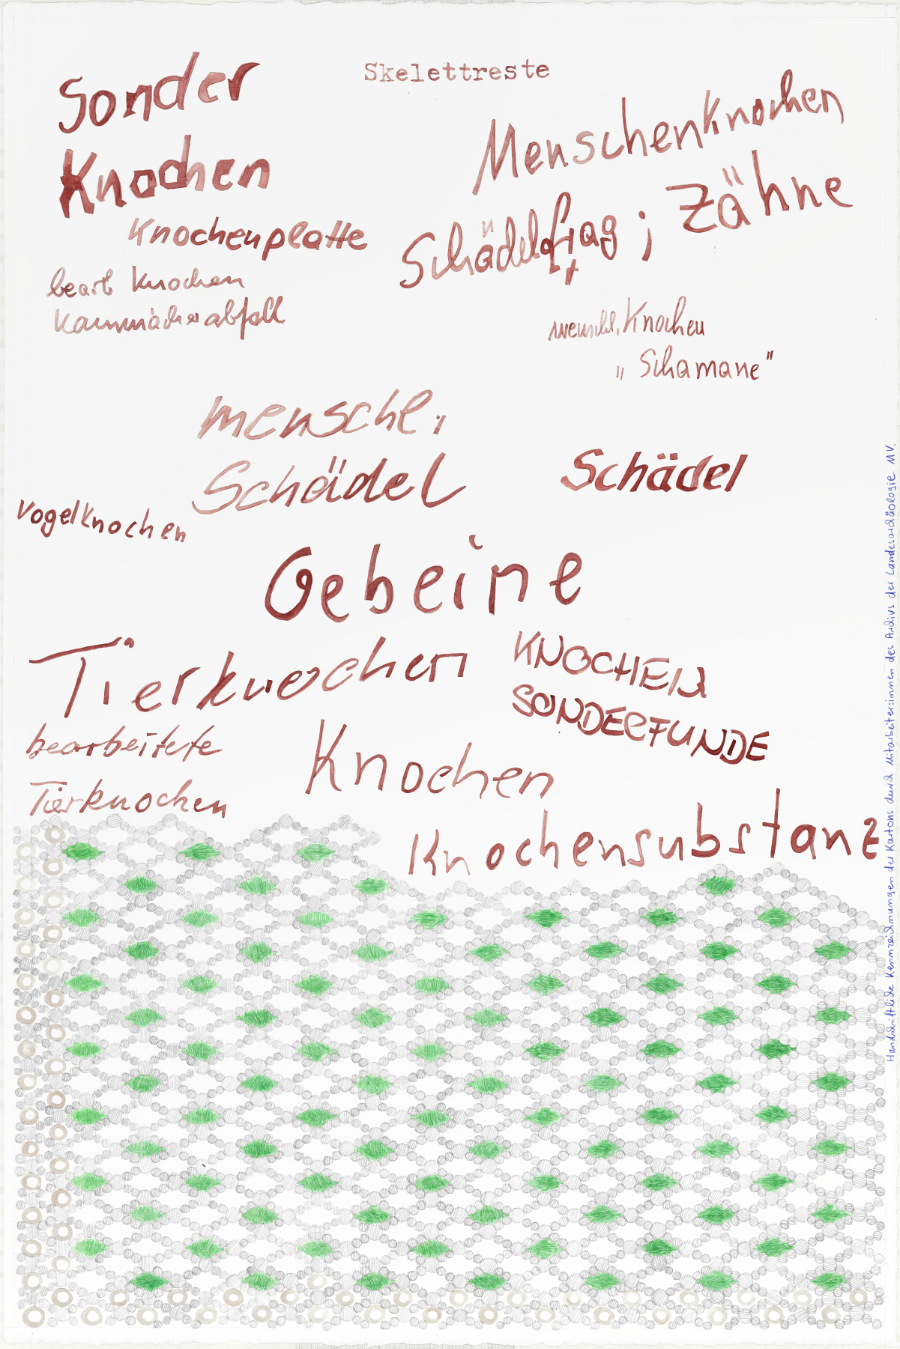 Sonder
Knochen
Skelettreste
Menschenknochen
Schädelfrag ; Zähne
Knochenplatte
bearb Knochen
Kammacherabfall
menschl. Knochen
„Schamane"
mensche.
Schädel
Schädel
Vogelknochen
Gebeine
Tierknochen
KNOCHEN
SONDERFUNDE
bearbeitete
Tierknochen
Knochen
Knochensubstanz
Handschriftliche Kennzeichnungen der Kartons durch Mitarbeiter:innen des Archivs der Landesarchäologie MV.